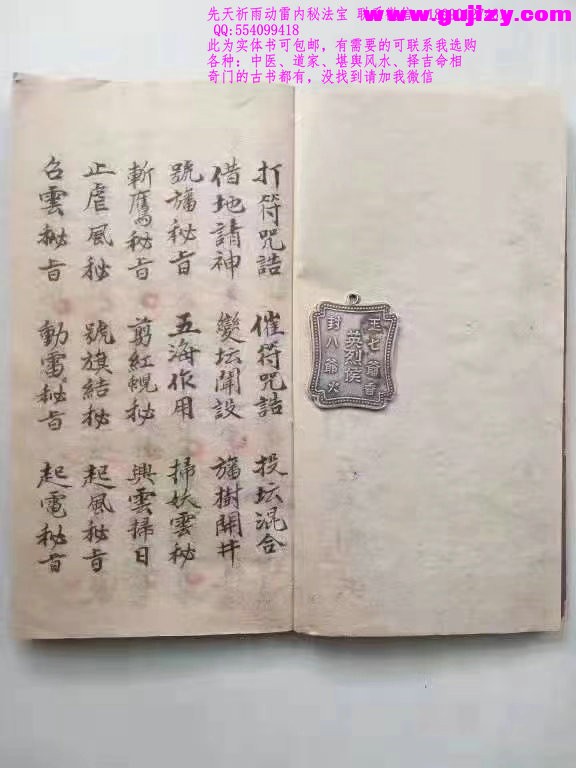 www.gujizy.com
先天祈雨动雷内秘法宝
QQ:554099418
此为实体书可包邮，有需要的可联系我选购
各种：中医、道家、堪舆风水、择吉命相
奇门的古书都有，没找到请加我微信
打符咒誥 催符咒誥 投坛混合
借地請神 變坛開設 旛樹開井
號旛秘旨 五海作用 掃妖雲秘
斬鷹秘旨 剪紅秘 興雲掃日
止虐風秘 號旗結秘 起風秘旨
召雲秘旨 動雷秘旨 起電秘旨
王七爺香
英烈侯
封八爺火